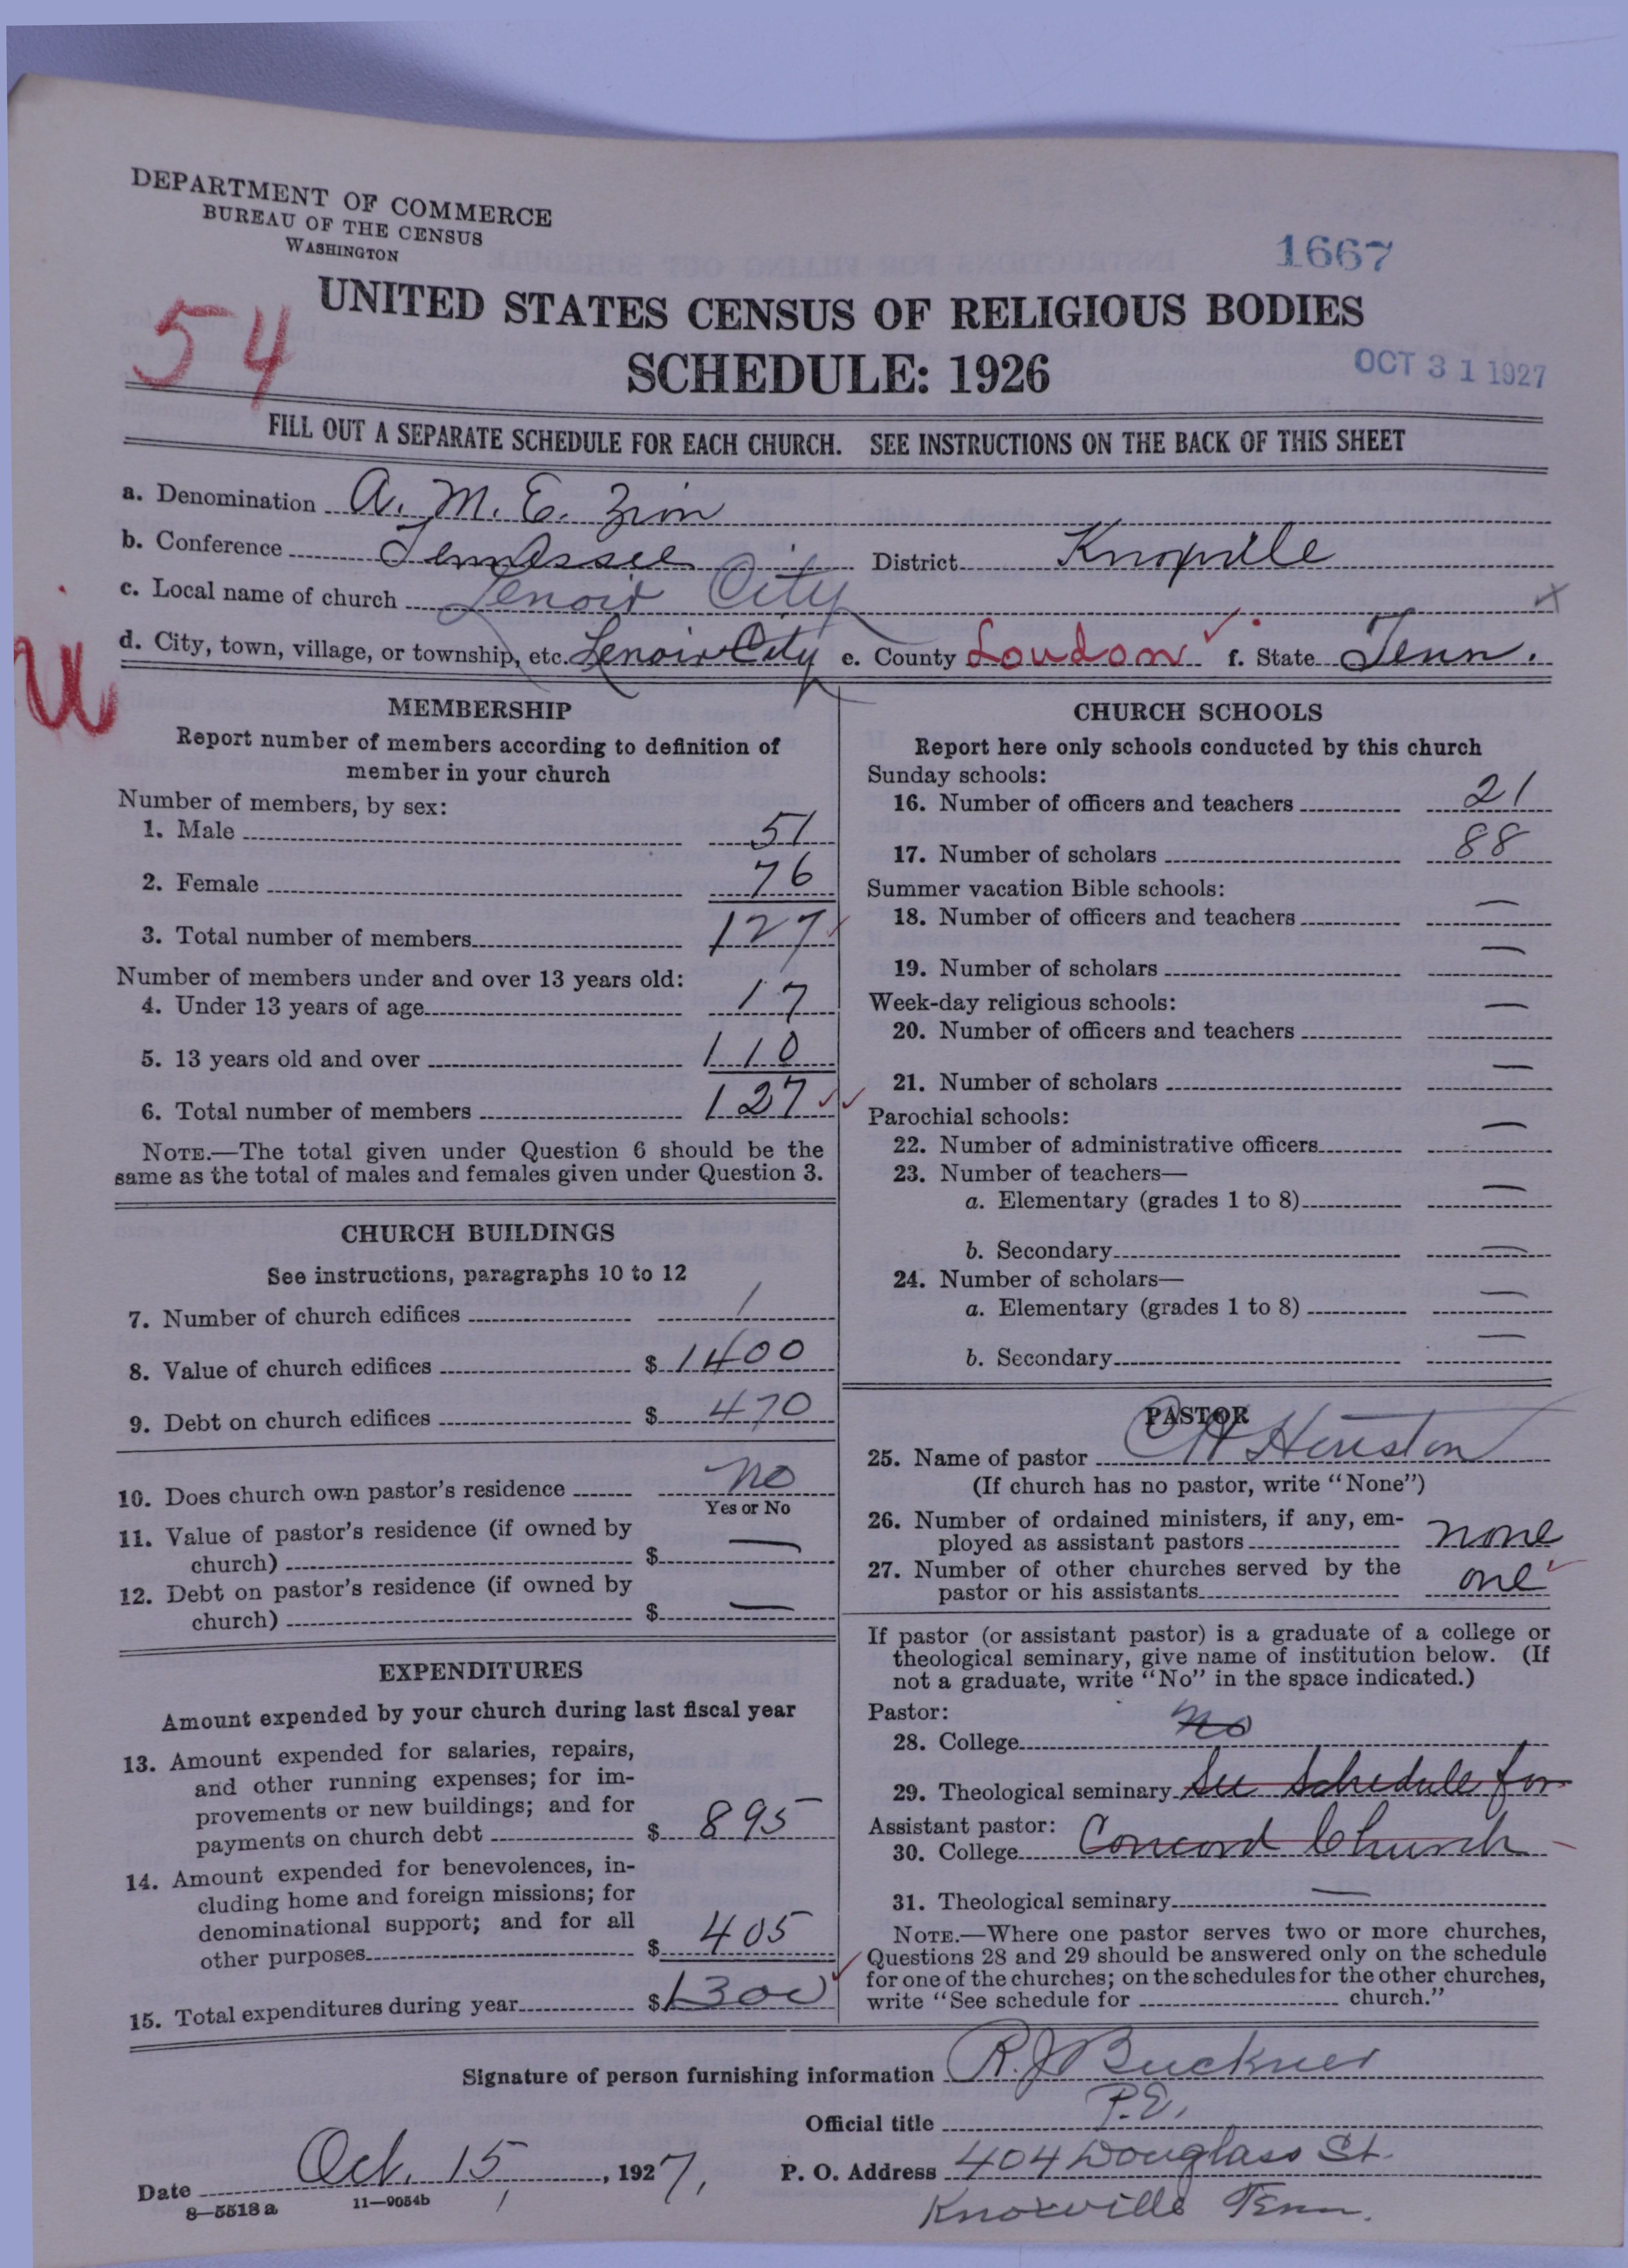 DEPARTMENT OF COMMERCE
BUREAU OF THE CENSUS
WASHINGTON
1667
54
UNITED STATES CENSUS OF RELIGIOUS BODIES
SCHEDULE: 1926
OCT 31 1927
FILL OUT A SEPARATE SCHEDULE FOR EACH CHURCH. SEE INSTRUCTIONS ON THE BACK OF THIS SHEET
a. Denomination A. M. E. Zion
b. Conference Tennessee District Knoxville
c. Local name of church Lenoir City
d. City, town, village, or township, etc. Lenoir City e. County Loudon f. State Tenn.
MEMBERSHIP
Report number of members according to definition of
member in your church
Number of members, by sex:
1. Male 51
2. Female 76
3. Total number of members 127
Number of members under and over 13 years old:
4. Under 13 years of age 17
5. 13 years old and over 110
6. Total number of members 127
NOTE.—The total given under Question 6 should be the
same as the total of males and females given under Question 3.
CHURCH BUILDINGS
See instructions, paragraphs 10 to 12
7. Number of church edifices 1
8. Value of church edifices $ 1400
9. Debt on church edifices $ 470
10. Does church own pastor's residence no
Yes or No
11. Value of pastor's residence (if owned by
church) $ —
12. Debt on pastor's residence (if owned by
church) $ —
EXPENDITURES
Amount expended by your church during last fiscal year
13. Amount expended for salaries, repairs,
and other running expenses; for im-
provements or new buildings; and for
payments on church debt $ 895
14. Amount expended for benevolences, in-
cluding home and foreign missions; for
denominational support; and for all
other purposes $ 405
15. Total expenditures during year $ 1300
CHURCH SCHOOLS
Report here only schools conducted by this church
Sunday schools:
16. Number of officers and teachers 21
17. Number of scholars 88
Summer vacation Bible schools:
18. Number of officers and teachers —
19. Number of scholars —
Week-day religious schools:
20. Number of officers and teachers —
21. Number of scholars —
Parochial schools:
22. Number of administrative officers —
23. Number of teachers—
a. Elementary (grades 1 to 8) —
b. Secondary —
24. Number of scholars—
a. Elementary (grades 1 to 8) —
b. Secondary —
PASTOR
25. Name of pastor C H Heuston
(If church has no pastor, write "None")
26. Number of ordained ministers, if any, em-
ployed as assistant pastors none
27. Number of other churches served by the
pastor or his assistants one
If pastor (or assistant pastor) is a graduate of a college or
theological seminary, give name of institution below. (If
not a graduate, write "No" in the space indicated.)
Pastor:
28. College No
29. Theological seminary See Schedule for
Assistant pastor:
30. College Concord Church
31. Theological seminary —
NOTE.—Where one pastor serves two or more churches,
Questions 28 and 29 should be answered only on the schedule
for one of the churches; on the schedules for the other churches,
write "See schedule for church."
Signature of person furnishing information R. J. Buckner
Official title P. E.
Date Oct. 15, 1927, P. O. Address 404 Douglass St.
Knoxville Tenn.
8—5518 a 11—9054b